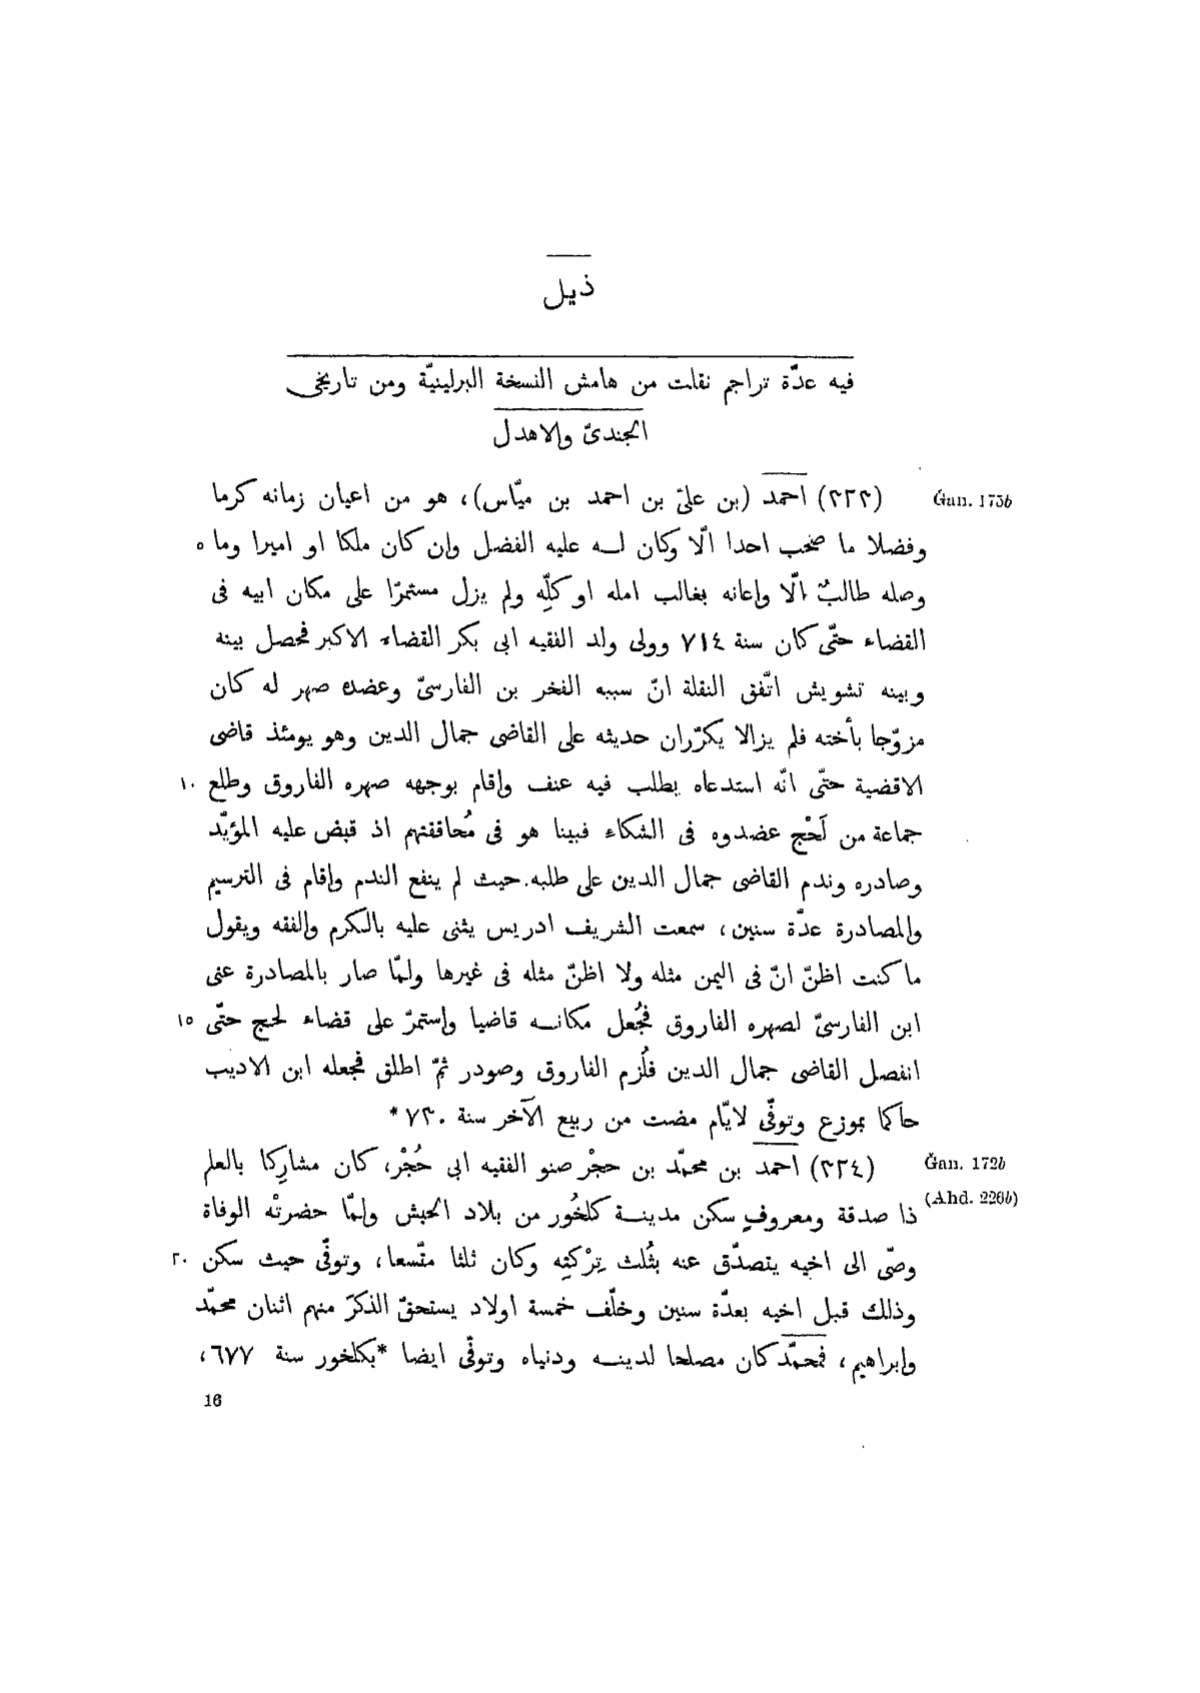 ذيل
فيه عدّة تراجم نقلت من هامش النسخة البرلينيّة ومن تاريخى
الجندىّ والاهدل
(٣٣٣) احمد (بن علىّ بن احمد بن ميّاس)، هو من اعيان زمانه كرما Ǧan. 175b
وفضلا ما صَحِب احدا الّا وكان له عليه الفضل وإن كان ملكا او اميرا وما ٥
وصله طالبٌ الّا وإعانه بغالب امله او كلِّه ولم يزل مستمرّا على مكان ابيه فى
القضاء حتّى كان سنة ٧١٤ وولى ولد الفقيه ابى بكر القضاء الاكبر فحصل بينه
وبينه تشويش اتّفق النقلة انّ سببه الفخر بن الفارسىّ وعضده صهر له كان
مزوّجا بأخته فلم يزالا يكرّران حديثه على القاضى جمال الدين وهو يومئذ قاضى
الاقضية حتّى انّه استدعاه بطلب فيه عنف وإقام بوجهه صهره الفاروق وطلع ١٠
جماعة من لَحْج عضدوه فى الشكاء فبينا هو فى مُحاققتهم اذ قبض عليه المؤيّد
وصادره وندم القاضى جمال الدين على طلبه حيث لم ينفع الندم وإقام فى الترسيم
والمصادرة عدّة سنين، سمعت الشريف ادريس يثنى عليه بالكرم والفقه ويقول
ما كنت اظنّ انّ فى اليمن مثله ولا اظنّ مثله فى غيرها ولمّا صار بالمصادرة عنى
ابن الفارسىّ لصهره الفاروق فجُعل مكانه قاضيا وإستمرّ على قضاء لحج حتّى ١٥
انفصل القاضى جمال الدين فلُزم الفاروق وصودر ثمّ اطلق فجعله ابن الاديب
حاكما بموزع وتوفّى لايّام مضت من ربيع الآخر سنة ٧٣٠*
(٣٣٤) احمد بن محمّد بن حجْر صنو الفقيه ابى حُجْر، كان مشارِكا بالعلم Ǧan. 172b
ذا صدقة ومعروفٍ سكن مدينة كلخُور من بلاد الحبش ولمّا حضرتْه الوفاة (Ahd. 226b)
وصّى الى اخيه يتصدّق عنه بثُلث تِرْكتِه وكان ثلثا متّسعا، وتوفّى حيث سكن ٢٠
وذلك قبل اخيه بعدّة سنين وخلّف خمسة اولاد يستحقّ الذكرَ منهم اثنان محمّد
وإبراهيم، فمحمّد كان مصلحا لدينه ودنياه وتوفّى ايضا *بكلخور سنة ٦٧٧،
16